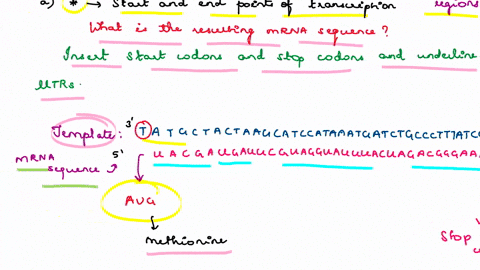 a) * → Start and end points of transcription regions
What is the resulting mRNA sequence?
Insert start codons and stop codons and underline
UTRs.
Template: 3' TATGCTACTAAGCATCCATAAATGATCTGCCCTT
mRNA sequence 5' UACGAUGAUUCGUAGGUAUUUACUAGACGGGAA
AUG
Methionine
Stop